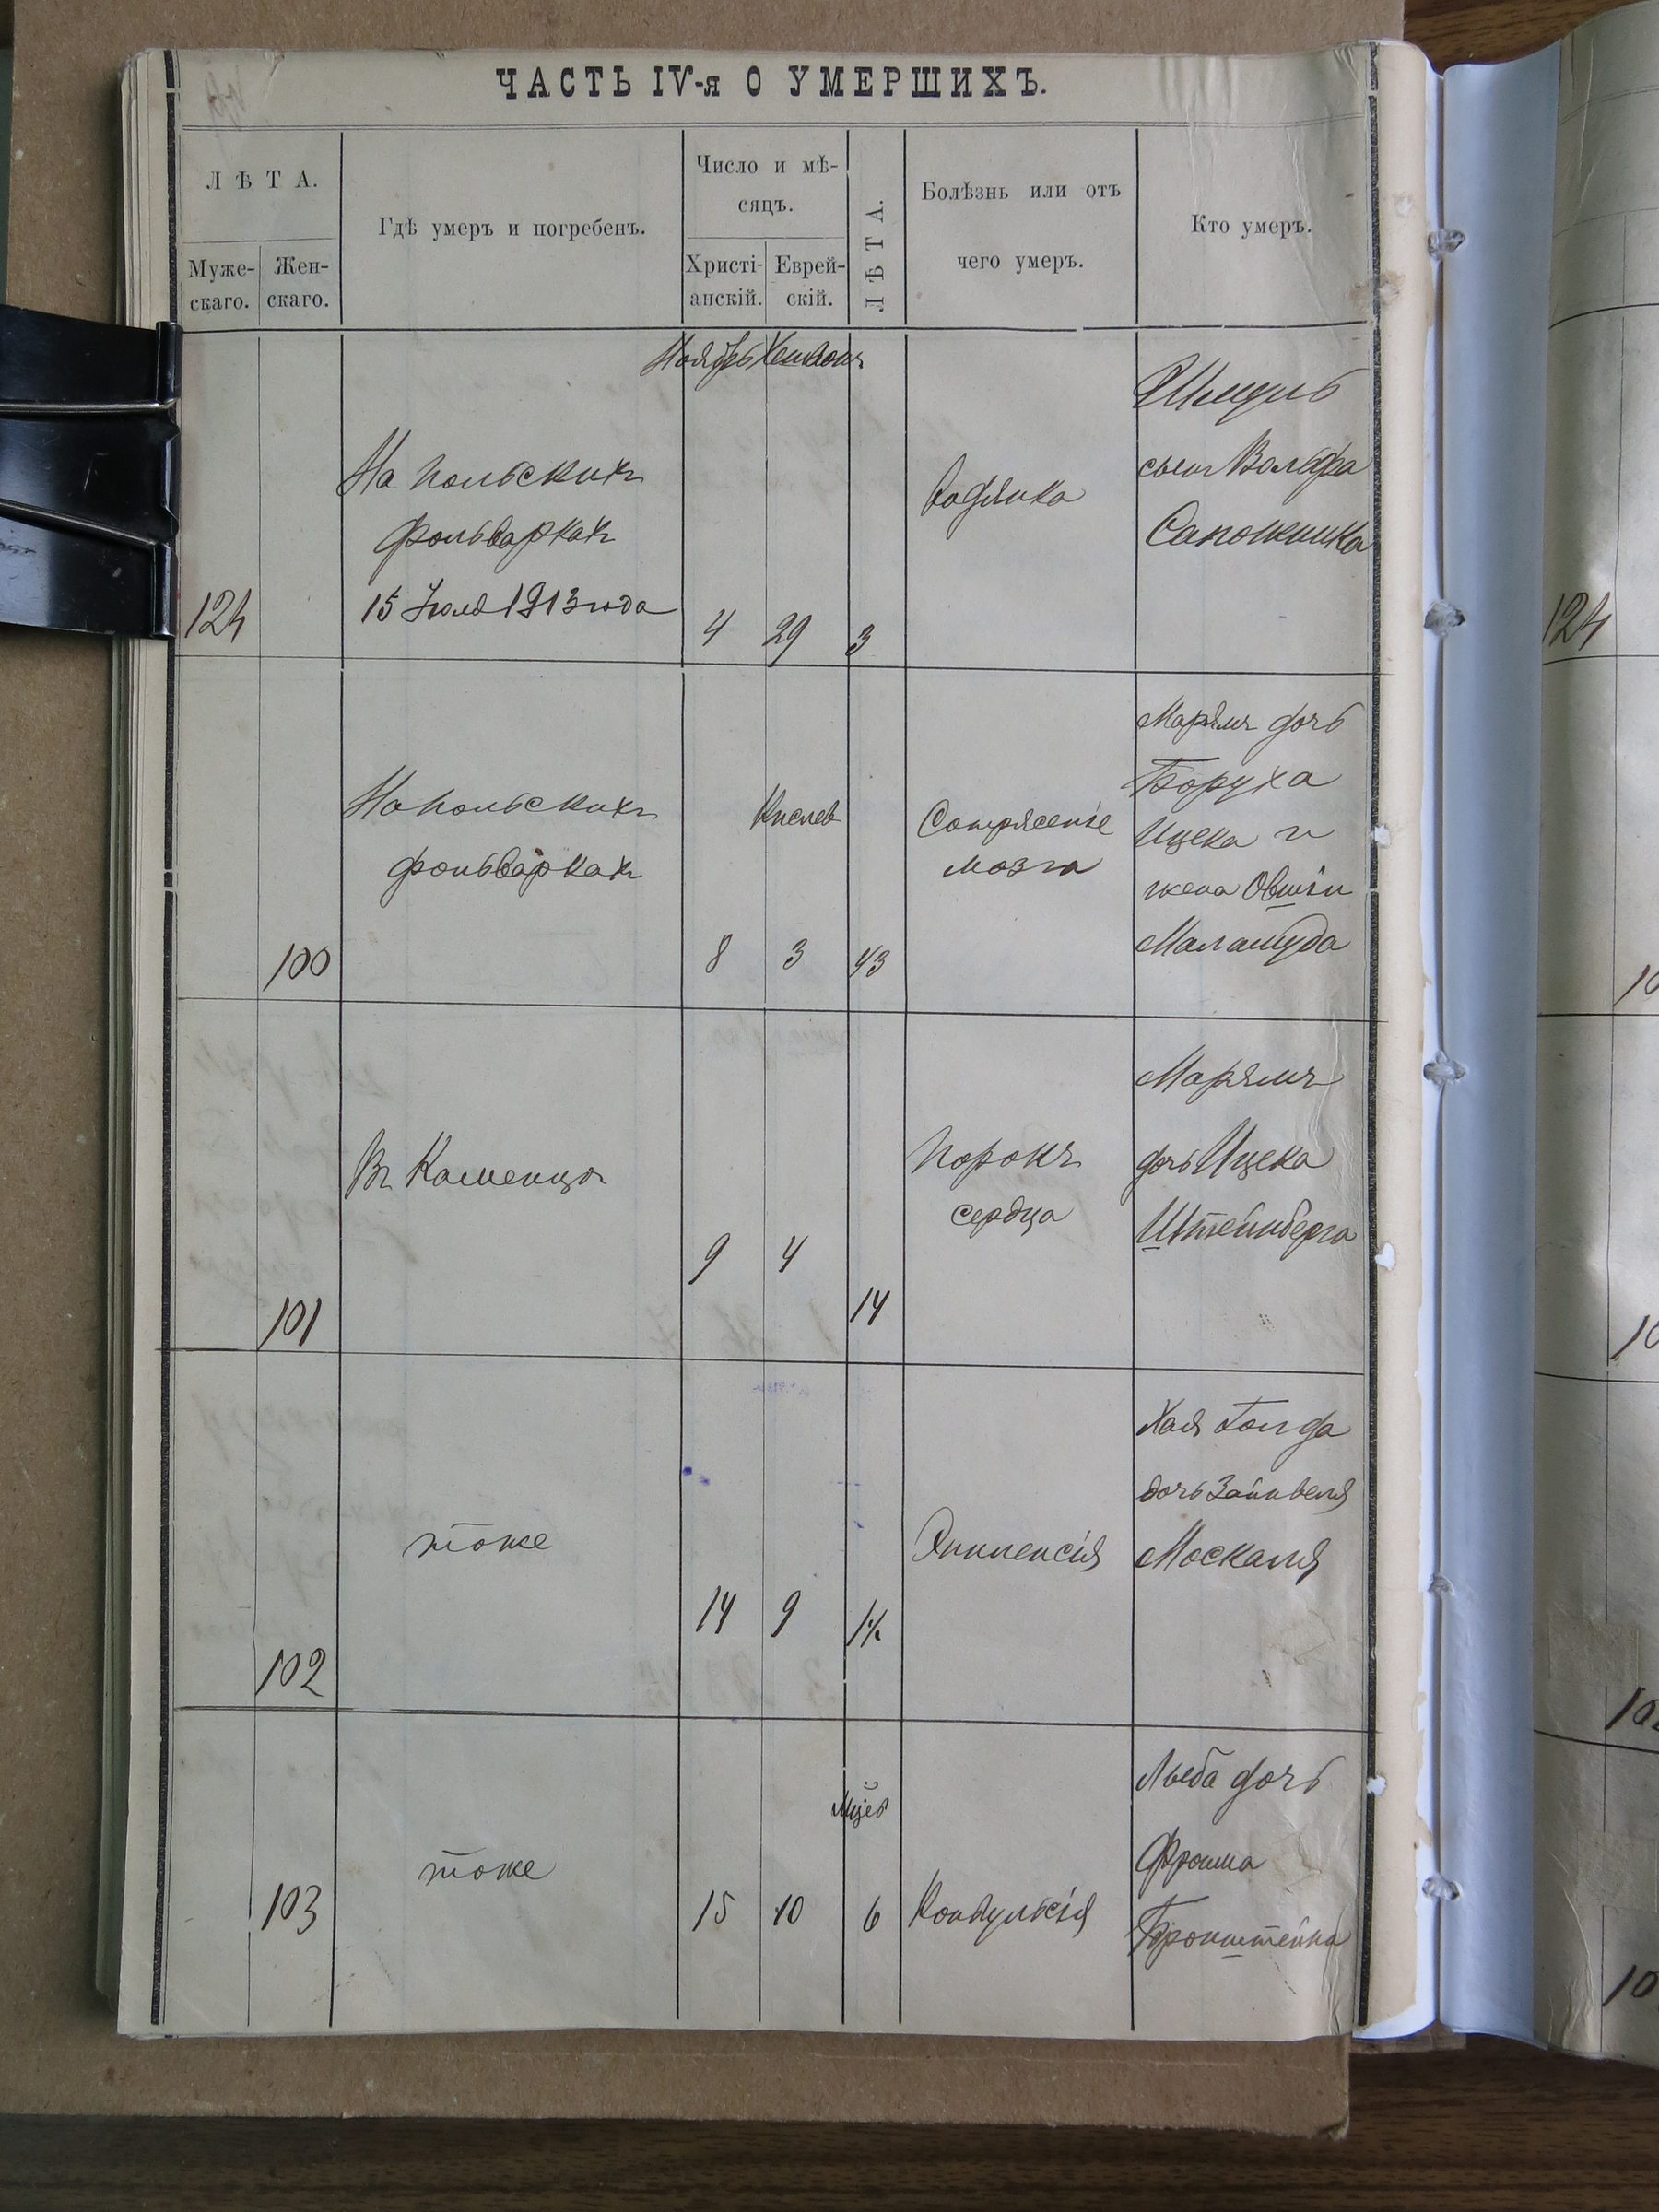 ЧАСТЬ IV-я О УМЕРШИХЪ.
ЛѢТА.
Муже-
скаго.
Жен-
скаго.
Гдѣ умеръ и погребенъ.
Число и мѣ-
сяцъ.
Христі-
анскій.
Еврей-
скій.
ЛѢТА.
Болѣзнь или отъ
чего умеръ.
Кто умеръ.
Ноябрь Хешвонъ
124
На польскихъ
фольваркахъ
15 Іюля 1913 года
4
29
3
водянка
сынъ Вольфа
Сапожника
124
100
На польскихъ
фольваркахъ
Кислев
8
3
43
Сотрясеніе
мозга
Марямъ дочь
Боруха
Ицека и
жена Овшіи
Маламуда
101
Въ Каменцѣ
9
4
14
Порокъ
сердца
Марямъ
дочь Ицека
Штейнберга
102
тоже
14
9
1½
Эпилепсія
Хая Голда
дочь Зайнвеля
Москаля
103
тоже
15
10
Мцев
6
Конвульсія
Лыба дочь
Фроима
Бронштейна